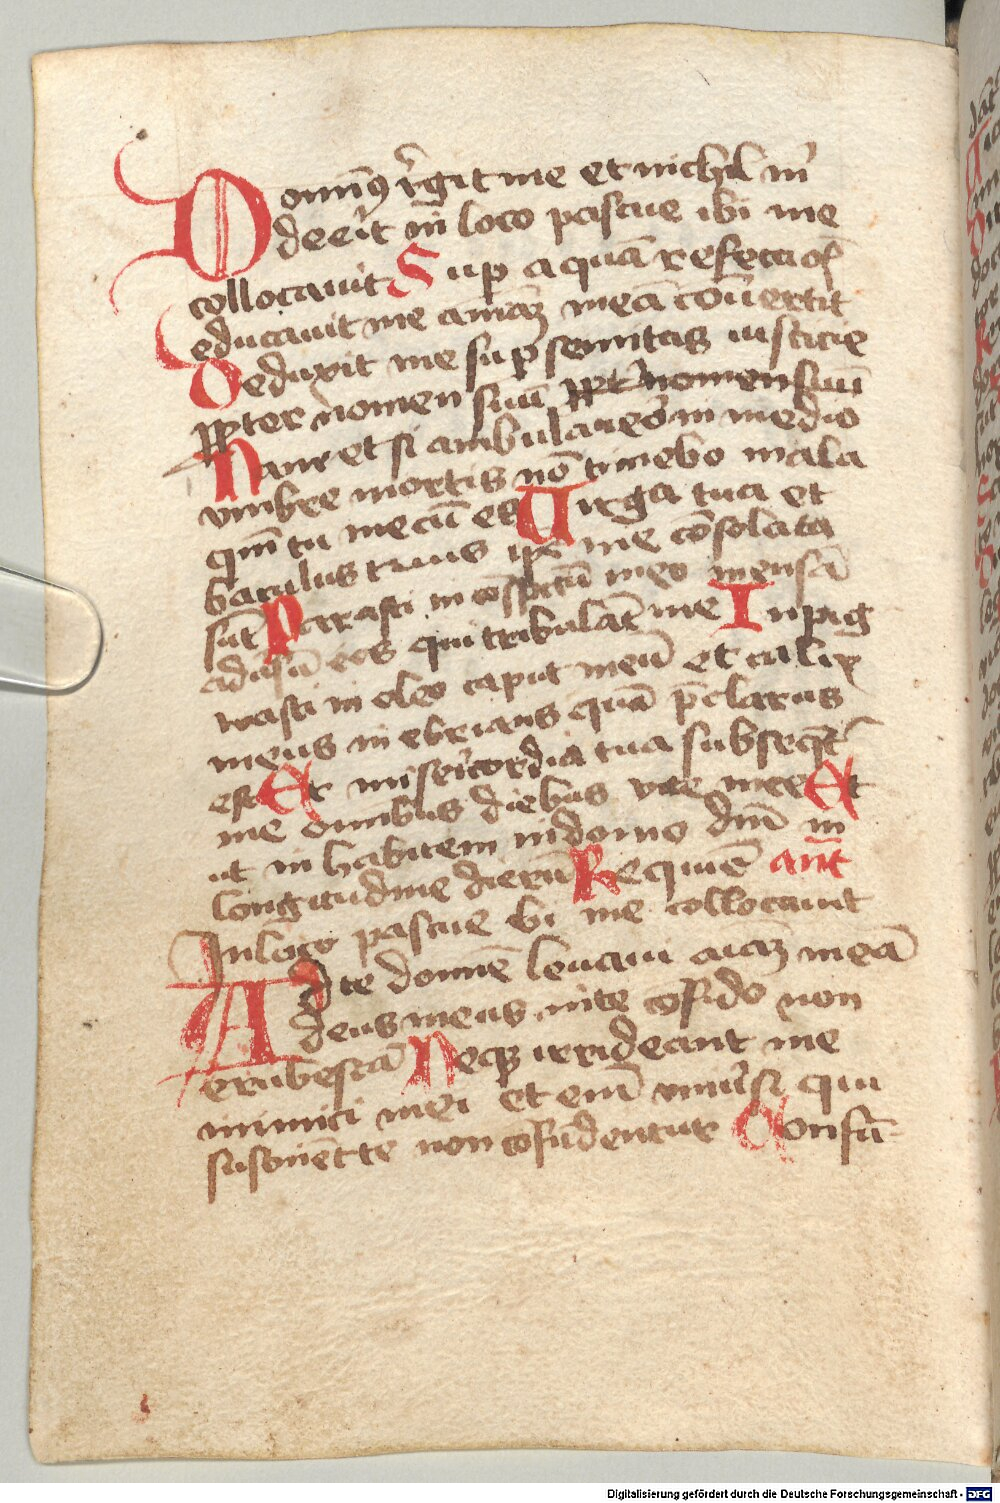 Domin⁹ regit me et nichil m̄
deerit in loco pascue ibi me
collocauit Sup aquā refectiōs
educauit me animā meā cōuertit
Deduxit me sup semitas iusticie
ꝓpter nomen suū ꝓpt nomen suū
Nam et si ambulauero in medio
vmbre mortis nō timebo mala
qm̄ tu mecū es Uirga tua et
baculus tuus ip̄e me cōsolata
sūt Parasti in cōspectu meo mensā
aduersū eos qui tribulāt me Inpig
wasti in oleo caput meū et calix
meus in ebrians quā p̄clarus
est Et misericordia tua subseq̄t̄
me omibus diebus vite mee Et
ut in habitem in domo dn̄i in
longitudine dierū Requiē an̄t
In loco pascue ibi me collocauit
Ad te domie leuaui aiaȝ meā
deus meus in te cōfido non
erubescā Neqȝ irrideant me
inimici mei et em̄ vniuersi qui
sustinēt te non cōfūdentur Confū-
Digitalisierung gefördert durch die Deutsche Forschungsgemeinschaft - DFG